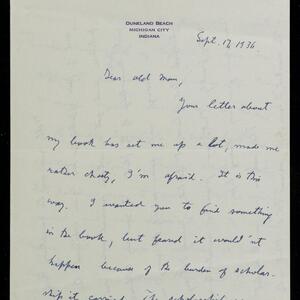 DUNELAND BEACH
MICHIGAN CITY
INDIANA
Sept. 17, 1936
Dear old Man,
Your letter about
my book has set me up a lot, made me
rather chesty, I'm afraid. It is this
way. I wanted you to find something
in the book, but feared it would'nt
happen because of the burden of scholar-
ship it carried. The